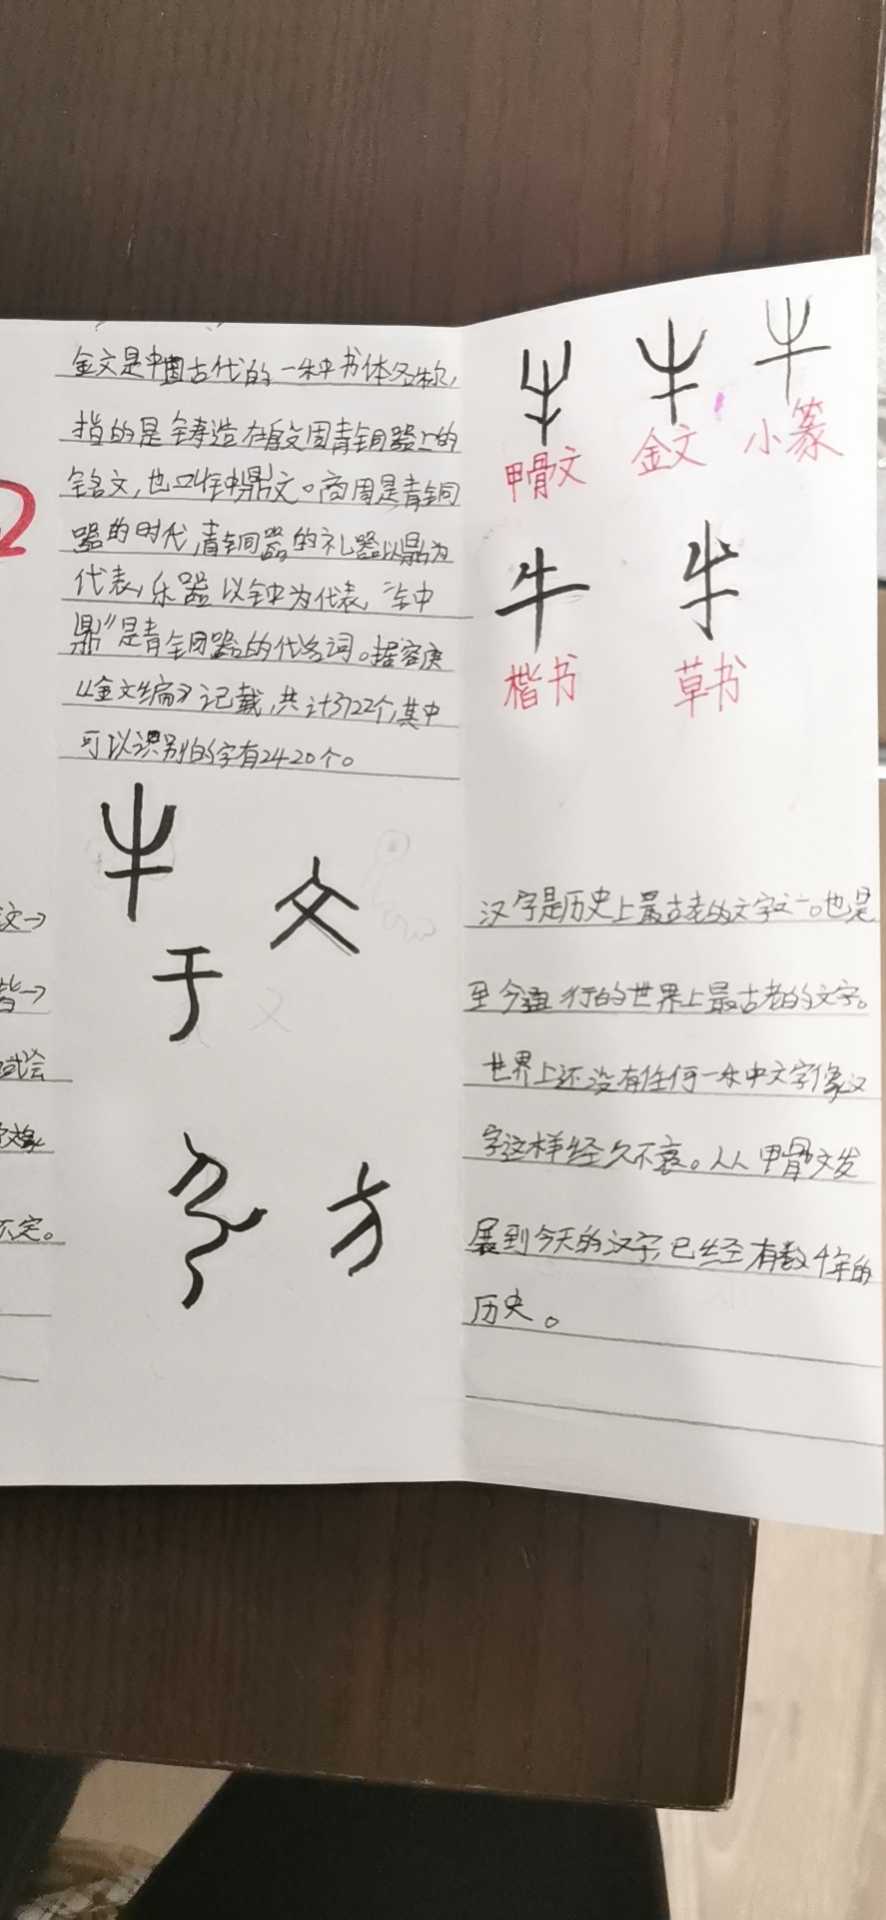 金文是中国古代的一种书体名称,
指的是铸造在殷周青铜器上的
铭文,也叫钟鼎文。商周是青铜
器的时代,青铜器的礼器以鼎为
代表,乐器以钟为代表,“钟
鼎”是青铜器的代名词。据容庚
《金文编》记载,共计3722个,其中
可以识别的字有2420个。
牛
文
于
方
文→
皆→
或会
不定。
甲骨文 金文 小篆
牛 牛
楷书 草书
汉字是历史上最古老的文字之一。也是
至今通行的世界上最古老的文字。
世界上还没有任何一种文字像汉
字这样经久不衰。从甲骨文发
展到今天的汉字,已经有数千年的
历史。